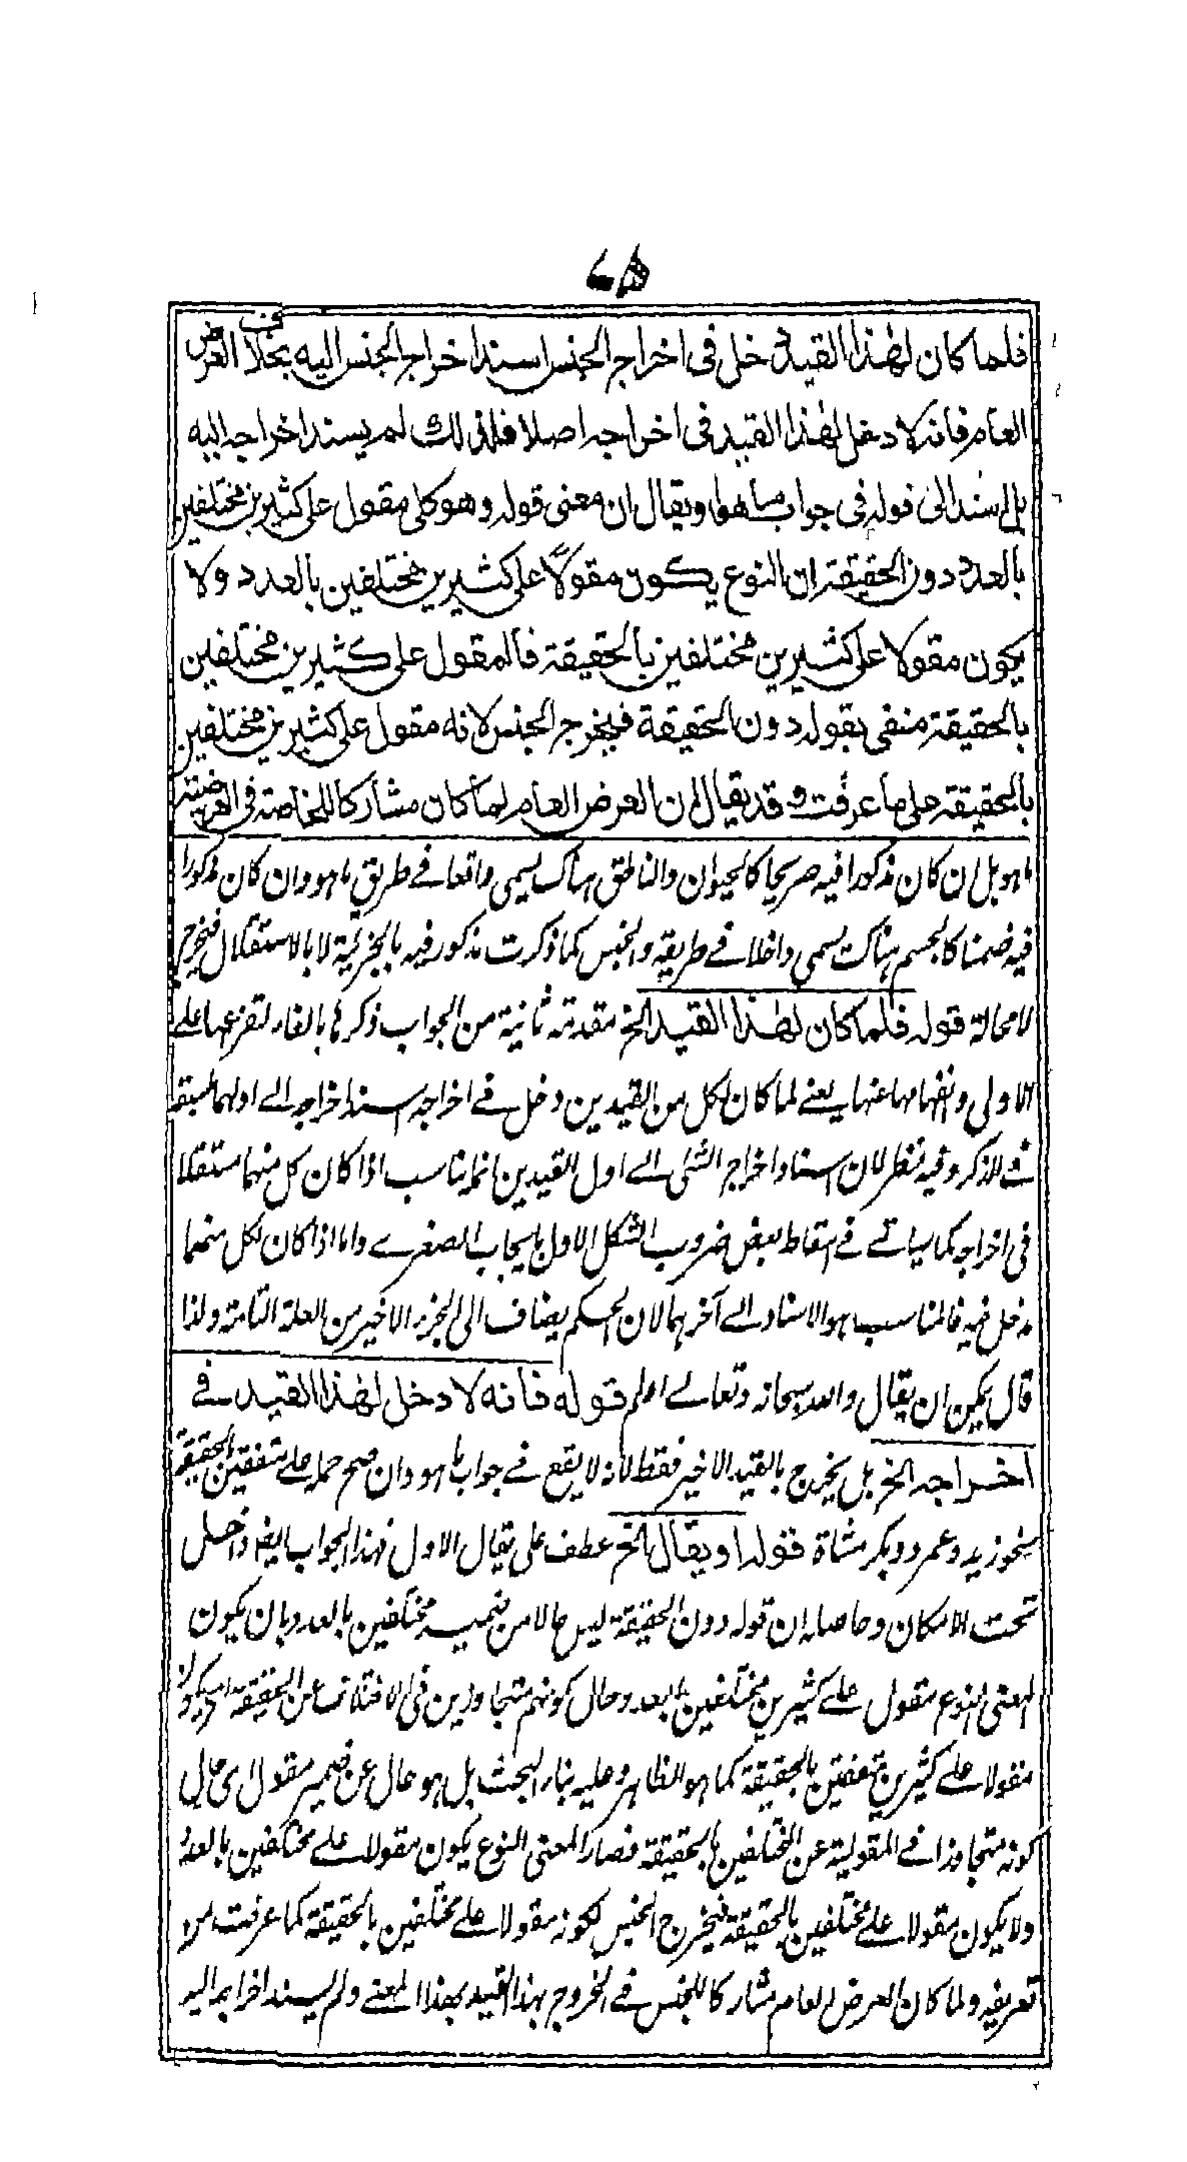 فلما كان لهذا القيد دخل فى اخراج الجنس اسند اخراج الجنس اليه بخلاف العرض
العام فانه لا دخل لهذا القيد فى اخراجه اصلا فلذلك لم يسند اخراجه اليه
بل اسند الى قوله فى جواب ما هو او يقال ان معنى قوله وهو كلى مقول على كثيرين مختلفين
بالعدد دون الحقيقة ان النوع يكون مقولاً على كثيرين مختلفين بالعدد ولا
يكون مقولا على كثيرين مختلفين بالحقيقة فالمقول على كثيرين مختلفين
بالحقيقة منفى بقوله دون الحقيقة فيخرج الجنس لانه مقول على كثيرين مختلفين
بالحقيقة على ما عرفت وقد يقال ان العرض العام لما كان مشاركا للخاصة فى العرضية
ما هو بل ان كان مذكورا فيه صريحا كالحيوان والناطق هناك يسمى واقعا فے طريق ما هو وان كان مذكورا
فيه ضمنا كالجسم هناك يسمى داخلا فے طريقه والجنس كما ذكرت مذكور فيه بالجزئية لا بالاستقلال فيخرج
لا محالة قوله فلما كان لهذا القيد الخ مقدمة ثانية من الجواب ذكرها بالفاء لتفرعها على
الاولى وانفهامها عنها يعنے لما كان لكل من القيدين دخل فے اخراجه اسند اخراجه الے اولهما لسبقه
فے الذكر وفيه نظر لان اسناد اخراج الشئ الے اول القيدين انما يناسب اذا كان كل منهما مستقلا
فى اخراجه كما سياتے فے اسقاط بعض ضروب الشكل الاول بايجاب الصغرے واما اذا كان لكل منهما
مدخل فيه فالمناسب هو الاسناد الے آخرهما لان الحكم يضاف الى الجزء الاخير من العلة التامة ولذا
قال يمكن ان يقال والله سبحانه وتعالے اعلم قوله فانه لا دخل لهذا القيد فے
اخراجه الخ بل يخرج بالقيد الاخير فقط لانه لا يقع فے جواب ما هو وان صح حمله علے متفقين الحقيقة
نحو زيد وعمرو وبكر مشاة قوله او يقال الخ عطف على يقال الاول فهذا الجواب ايضا داخل
تحت الامكان وحاصله ان قوله دون الحقيقة ليس حالا من ضمير مختلفين بالعدد بان يكون
المعنى النوع مقول علے كثيرين مختلفين بالعدد حال كونهم متجاوزين فى الاختلاف عن الحقيقة
مقولا علے كثيرين متفقين بالحقيقة كما هو الظاهر وعليه بناء البحث بل هو حال عن ضمير مقول اى حال
كونه متجاوزا فے المقولية عن المختلفين بالحقيقة فصار المعنى النوع يكون مقولا علے مختلفين بالعدد
ولا يكون مقولا علے مختلفين بالحقيقة فيخرج الجنس لكونه مقولا علے مختلفين بالحقيقة كما عرفت من
تعريفه ولما كان العرض العام مشاركا للجنس فے الخروج بهذا القيد بهذا المعنے ولم يسند اخراجه اليه